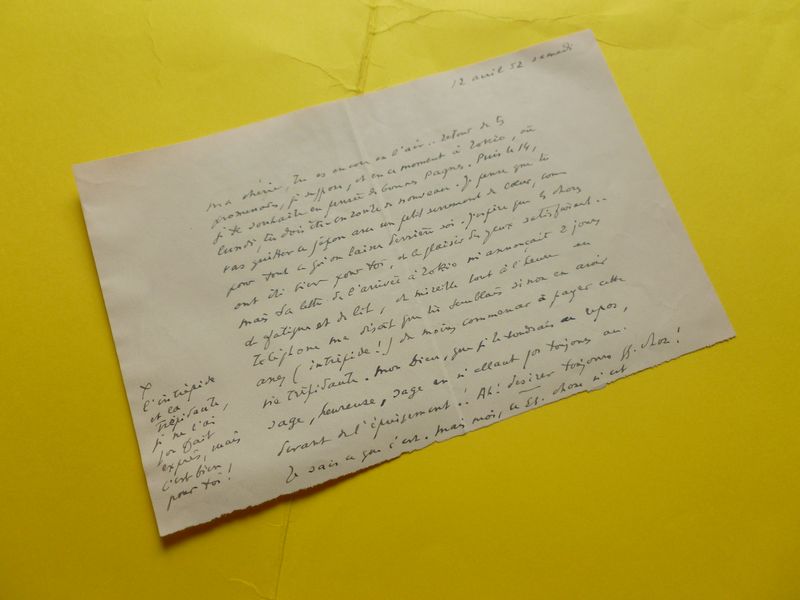 12 avril 52 samedi
ma chérie, tu es encore en l'air.. retour de tes
promenades, je suppose, et en ce moment à Tokio, où
je te souhaite en pensée de bonnes Pâques. Puis le 14,
lundi, tu dois être en route de nouveau. Je pense que tu
vas quitter ce Japon avec un petit serrement de cœur, comme
pour tout ce qu'on laisse derrière soi. J'espère que tes chers
ont été bien pour toi, et le plaisir des yeux satisfaisant..
mais ta lettre de l'arrivée à Tokio m'annonçait 2 jours
de fatigue et de lit, et Mireille tout à l'heure au
téléphone me disait que tu semblais sinon en avoir
assez (intrépide!) du moins commencer à payer cette
vie trépidante. Mon Dieu, que je te voudrais au repos,
sage, heureuse, sage en n'allant pas toujours au
devant de l'épuisement.. Ah! désirer toujours qq. chose!
Je sais ce que c'est. Mais moi, ce qq. chose n'est
x
l'intrépide
et la
trépidante,
je ne l'ai
pas fait
exprès, mais
c'est bien
pour toi!